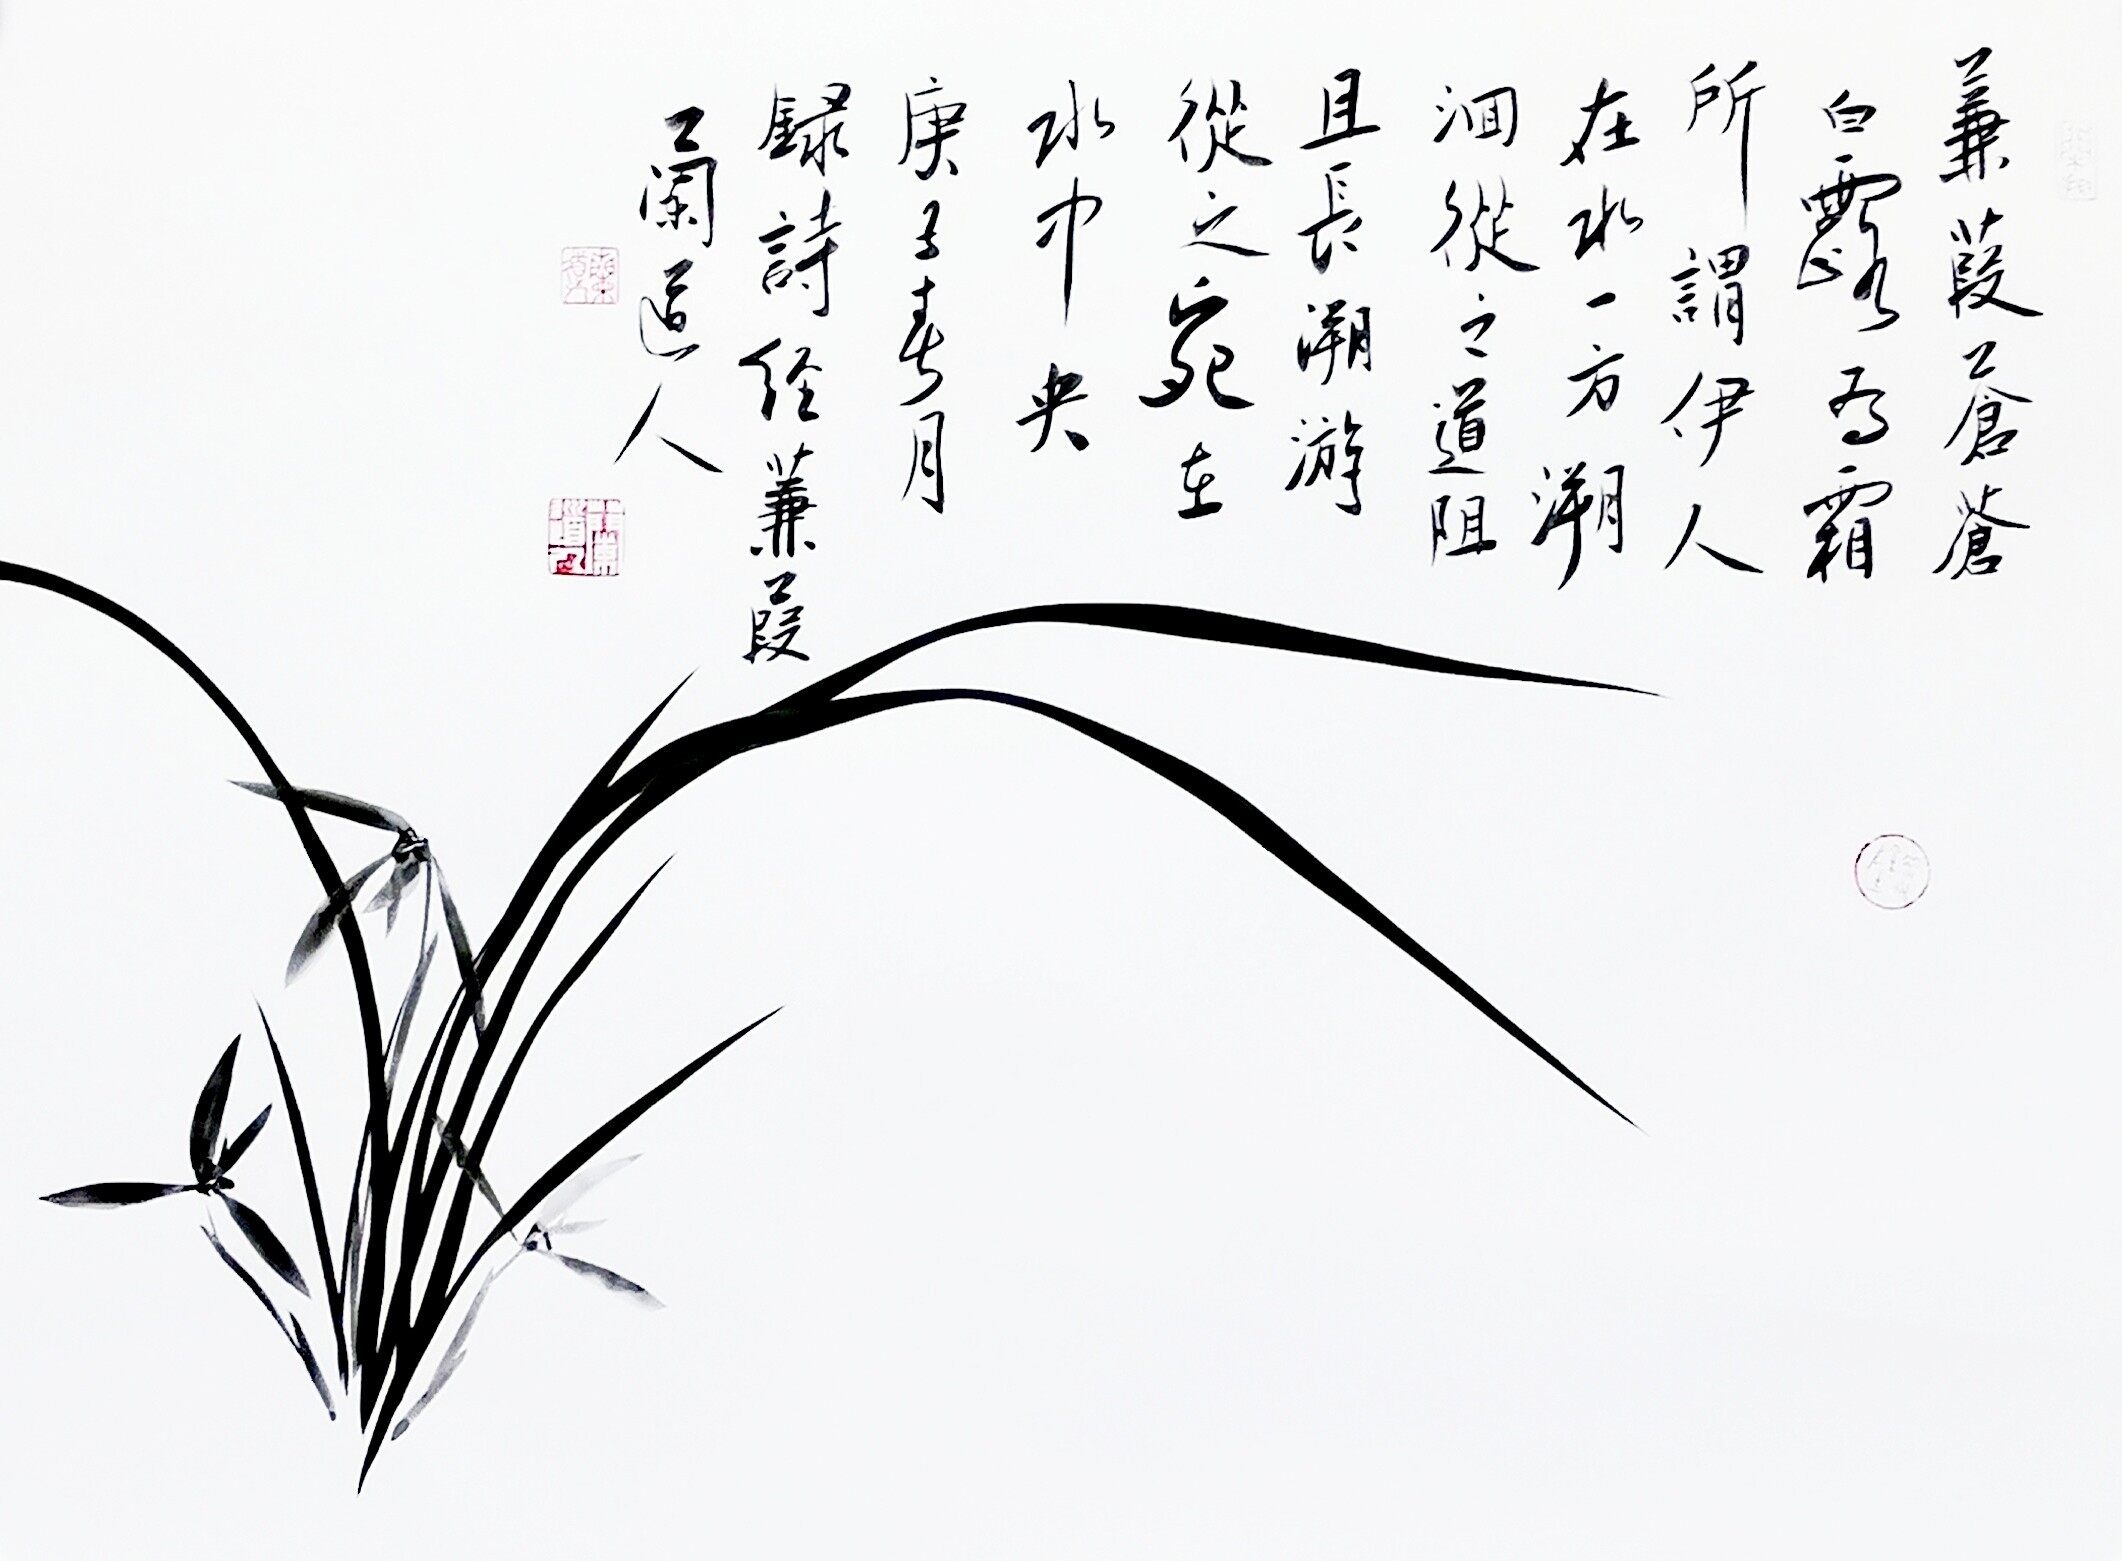 蒹葭蒼蒼
白露為霜
所謂伊人
在水一方溯
洄從之道阻
且長溯游
從之宛在
水中央
庚子春月
録詩經蒹葭
蘭道人